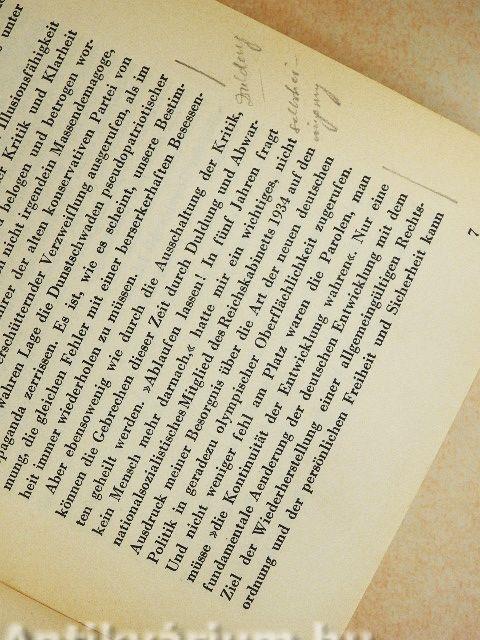 unter
Illusionsfähigkeit
Kritik und Klarheit
belogen und betrogen wor-
nicht irgendein Massendemagoge,
der alten konservativen Partei von
erschütternder Verzweiflung ausgerufen, als im
wahren Lage die Dunstschwaden pseudopatriotischer
zerrissen. Es ist, wie es scheint, unsere Bestim-
mung, die gleichen Fehler mit einer berserkerhaften Besessen-
heit immer wiederholen zu müssen.
Aber ebensowenig wie durch die Ausschaltung der Kritik,
können die Gebrechen dieser Zeit durch Duldung und Anwar-
ten geheilt werden. »Ablaufen lassen! In fünf Jahren fragt
kein Mensch mehr darnach,« hatte mir ein wichtiges, nicht
nationalsozialistisches Mitglied des Reichskabinetts 1934 auf den
Ausdruck meiner Besorgnis über die Art der neuen deutschen
Politik in geradezu olympischer Oberflächlichkeit zugerufen.
Und nicht weniger fehl am Platz waren die Parolen, man
müsse »die Kontinuität der Entwicklung wahren«. Nur eine
fundamentale Aenderung der deutschen Entwicklung mit dem
Ziel der Wiederherstellung einer allgemeingültigen Rechts-
ordnung und der persönlichen Freiheit und Sicherheit kann
7
Duldung
Antikvárium.hu